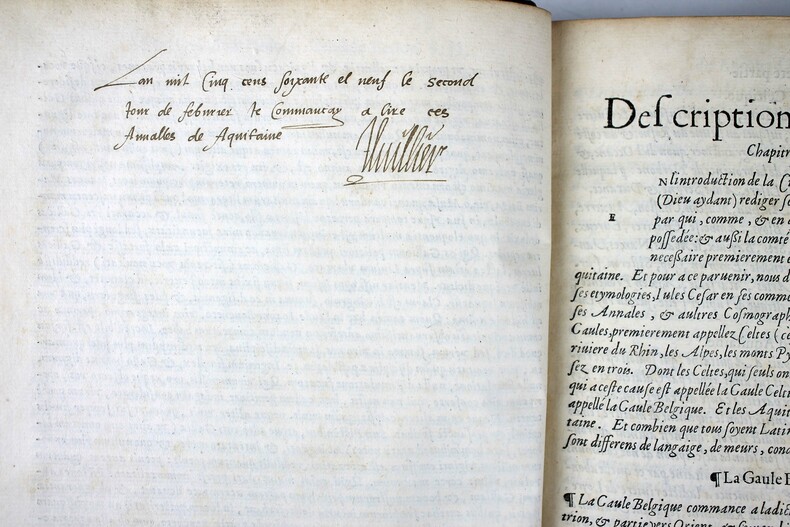 Lan mil Cinq cens soixante et neuf le second
Jour de feburier Je Commancay a lire ces
Annalles de Aquitaine
Thuillier
Deſcription
Chapitr
Nl'introduction de la C
(Dieu aydant) rediger ſe
E
par qui, comme, & en
poſſedée: & auſsi la comté
neceſſaire premierement e
quitaine. Et pour a ce paruenir, nous d
ſes etymologies, Iules Ceſar en ſes comme
ſes Annales, & aultres Coſmograph
Gaules, premierement appellez Celtes (ce
riuiere du Rhin, les Alpes, les monts Py
ſez en trois. Dont les Celtes, qui ſeuls on
qui a ceſte cauſe eſt appellée la Gaule Celti
appellé la Gaule Belgique. Et les Aquit
taine. Et combien que tous ſoyent Latin
ſont differens de langaige, de meurs, cond
¶ La Gaule B
¶ La Gaule Belgique commance a ladic
trion, & partie vers Orient